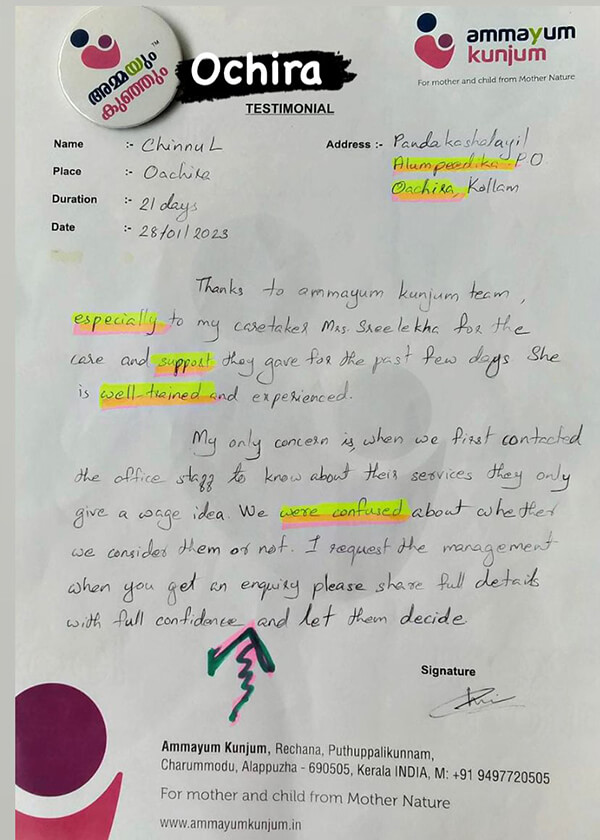 അമ്മയും
കുഞ്ഞും
TM
Ochira
ammayum
kunjum
For mother and child from Mother Nature
TESTIMONIAL
Name :- Chinnu L
Address :- Pandakashalayil
Place :- Oachira
Alumpeedika P.O
Duration :- 21 days
Oachira, Kollam
Date :- 28/01/2023
Thanks to ammayum kunjum team,
especially to my caretaker Mrs. Sreelekha for the
care and support they gave for the past few days She
is well-trained and experienced.
My only concern is, when we first contacted
the office staff to know about their services they only
give a wage idea. We were confused about whether
we consider them or not. I request the management
when you get an enquiry please share full details
with full confidence and let them decide
Signature
Ammayum Kunjum, Rechana, Puthuppalikunnam,
Charummodu, Alappuzha - 690505, Kerala INDIA, M: +91 9497720505
For mother and child from Mother Nature
www.ammayumkunjum.in